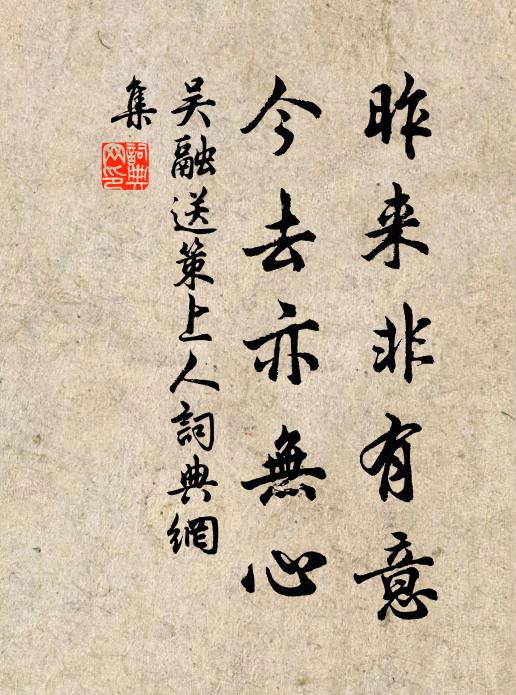 昨来非有意
今去亦無心
吳融送策上人詞典網
集
詞典
网印